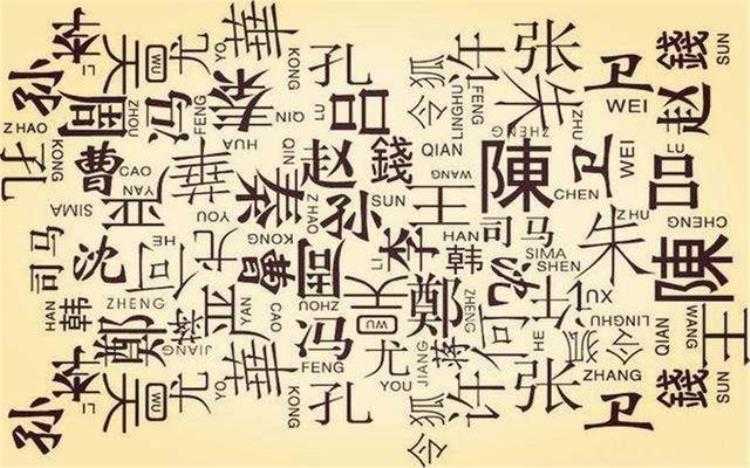 孙
李
LI
吴
WU
尤
YO
華
KONG
孔
令狐
许
张
卫
錢
SUN
ZHAO
周
ZHOU
冯
FENG
秦
QIN
LU
吕
LINGHU
FENG
朱
ZHENG
ZHU
WEI
赵
孔
KONG
曹
CAO
華
HUA
QIN
赵
錢
QIAN
WANG
陳
CHEN
卫
WEI
LU
吕
SIMA
YAN
严
YOU
秦
ZHAO
孙
SUN
王
HAN
司马
ZHU
朱
CHENG
司马
沈
何
HE
尤
KONG
曹
周
LI
李
韩
SIMA
SHEN
沈
陳
HAN
韩
ZHENG
鄭
蒋
JIANG
严
YAN
CAO
ZHOU
冯
FENG
吴
WU
鄭
ZHENG
何
HE
许
XU
LINGHU
令狐
QIAN
WANG
王
尤
YOU
JIANG
蒋
ZHANG
孙
李
LI
吴
WU
尤
YO
華
KONG
孔
令狐
许
张
卫
錢
SUN